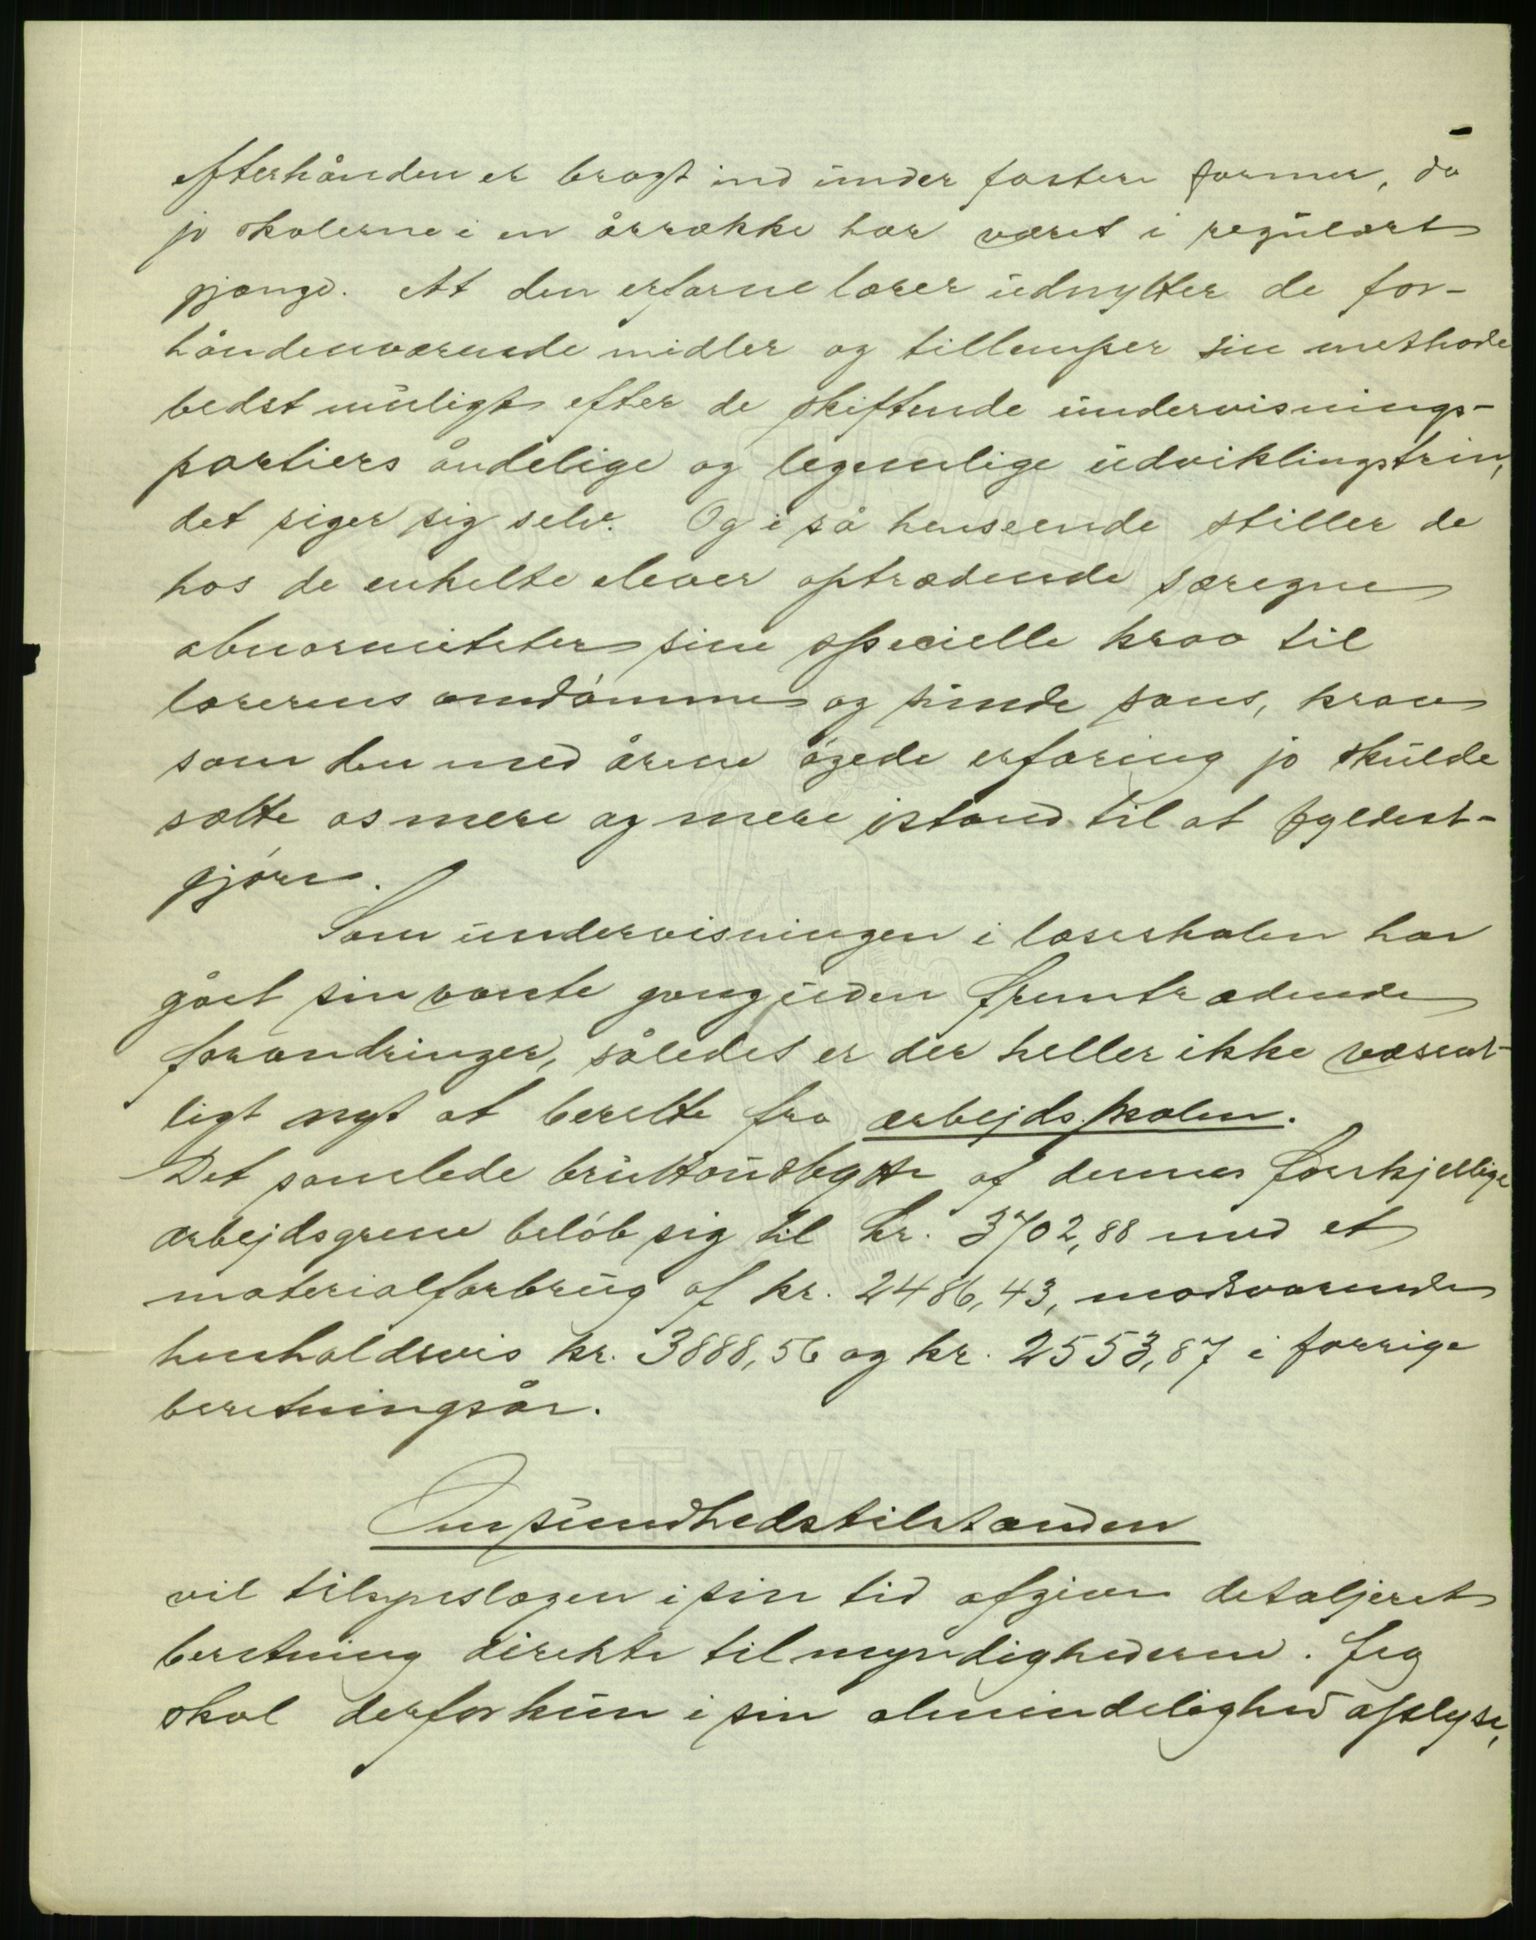 efterhånden er bragt ind under fastere former, da
jo skolerne i en årrække har været i regulært
gjænge. At den erfarne lærer udnytter de for-
håndenværende midler og tillemper sin methode
bedst muligt efter de skiftende undervisnings-
partiers åndelige og legemlige udviklingstrin,
det siger sig selv. Og i så henseende stiller de
hos de enkelte elever optrædende særegne
abnormiteter sine specielle krav til
lærerens omdømme og sunde sans, krav
som den med årene øgede erfaring jo skulde
sætte os mere og mere istand til at fyldest-
gjøre.
Som undervisningen i læseskolen har
gået sin vante gang uden fremtrædende
forandringer, således er der heller ikke væsent-
ligt nyt at berette fra arbejdsskolen.
Det samlede bruttoudbytte af dennes forskjellige
arbejdsgrene beløb sig til kr. 3702,88 med et
materialforbrug af kr. 2486,43, modsvarende
henholdsvis kr. 3888,56 og kr. 2553,87 i forrige
beretningsår.
Om sundhedstilstanden
vil tilsynslægen i sin tid afgive detaljeret
beretning direkte til myndighederne. Jeg
skal derfor kun i sin almindelighed oplyse,